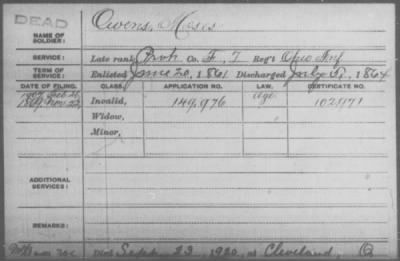 DEAD
Owens, Moses
NAME OF SOLDIER:
SERVICE: Late rank Co. F, 7 Reg't Ohio Inf
TERM OF SERVICE: Enlisted June 20, 1861 Discharged July 1864
DATE OF FILING. CLASS. APPLICATION NO. LAW. CERTIFICATE NO.
Age
Nov. 22, Invalid, 149,976 102971
Widow,
Minor,
ADDITIONAL SERVICES:
REMARKS:
Died Sept. 23, 1920, at Cleveland, O